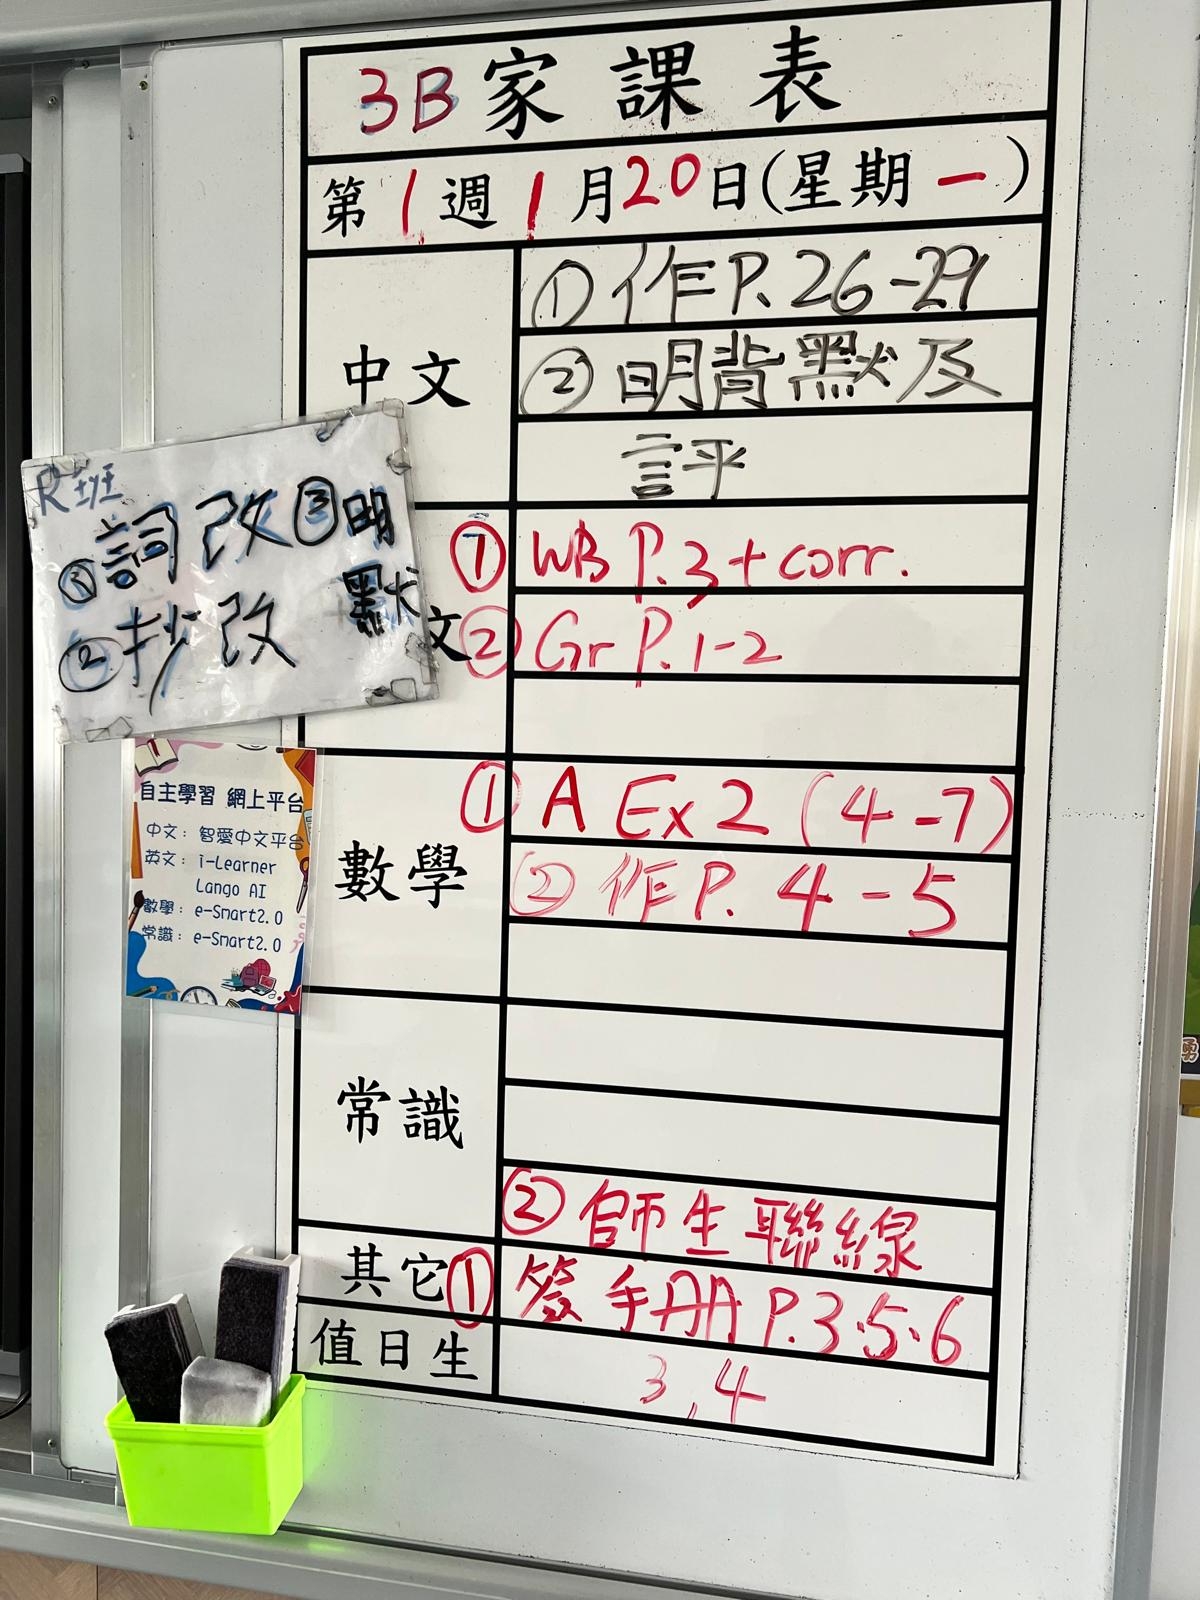 3B家課表
第1週1月20日(星期一)
中文
①作P.26-29
②明背默及
評
文
①WB P.3+corr.
②Gr P.1-2
數學
①A Ex2(4-7)
②作P.4-5
常識
②師生聯線
其它
①簽手冊P.3.5.6
值日生
3,4
R班
③詞改③明
默
②抄改
自主學習 網上平台
中文：智愛中文平台
英文：i-Learner
Lango AI
數學：e-Smart2.0
常識：e-Smart2.0